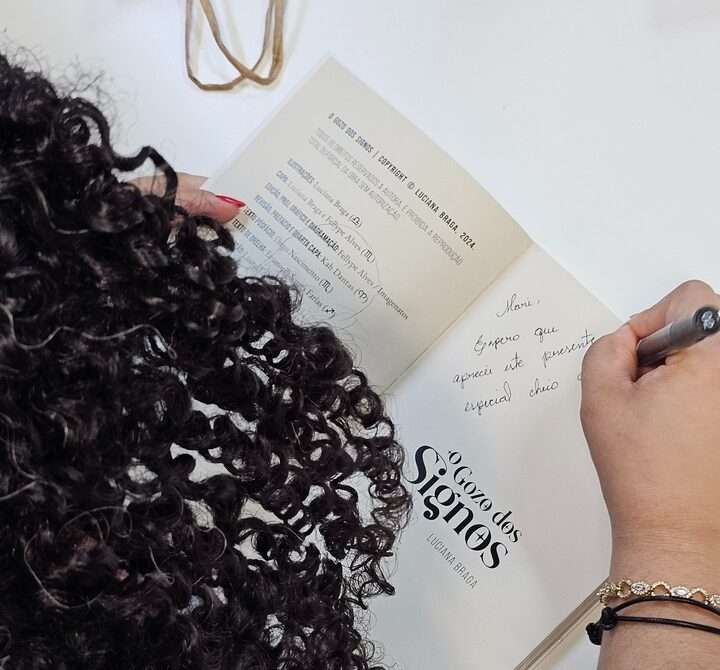 O GOZO DOS SIGNOS | COPYRIGHT © LUCIANA BRAGA, 2024.
TODOS OS DIREITOS RESERVADOS À AUTORA. É PROIBIDA A REPRODUÇÃO
TOTAL OU PARCIAL DA OBRA SEM AUTORIZAÇÃO.
ILUSTRAÇÕES: Luciana Braga (♎)
CAPA: Luciana Braga e Fellype Alves (♏)
EDIÇÃO, PROJ. GRÁFICO E DIAGRAMAÇÃO: Fellype Alves / Antagonatos
REVISÃO, PREFÁCIO E QUARTA CAPA: Kah Dantas (♈)
TEXTO POSFÁCIO: Nascimento (♏)
TEXTO Farias
Mari,
Espero que
aprecie este presente
especial cheio
O Gozo dos
Signos
LUCIANA BRAGA